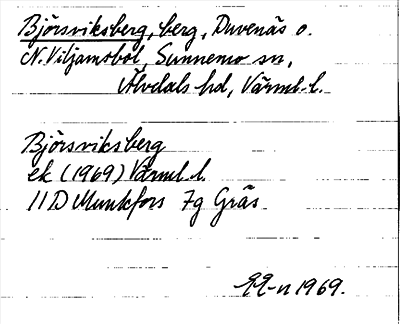 Björsviksberg, berg, Duvenäs o.
N. Viljamsbol, Sunnemo sn,
Älvdals hd, Värml. l.
Björsviksberg
ek (1969) Värml. l.
11D Munkfors 7g Gräs
-n 1969.